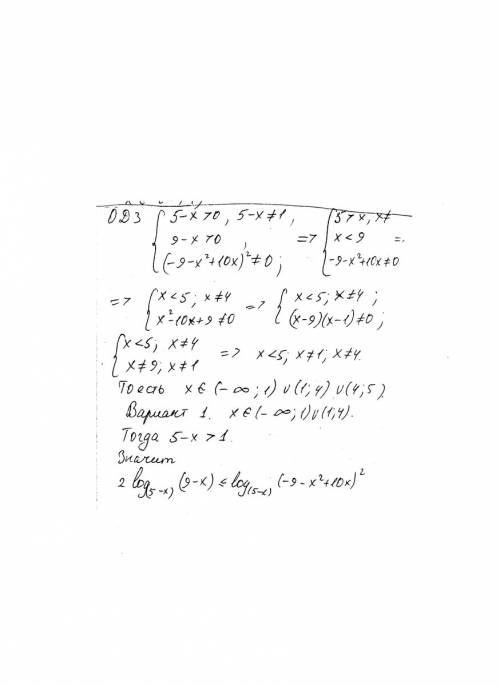 ОДЗ { 5-x>0, 5-x≠1, 9-x>0, (-9-x²+10x)²≠0; => { 5>x, x≠ x<9 -9-x²+10x≠0 =>
=> { x<5; x≠4 x²-10x+9≠0 => { x<5; x≠4; (x-9)(x-1)≠0;
{ x<5; x≠4 x≠9; x≠1 => x<5; x≠1; x≠4.
То есть x∈(-∞;1)∪(1;4)∪(4;5)
Вариант 1. x∈(-∞;1)∪(1;4).
Тогда 5-x>1.
Значит
2 log₍₅₋ₓ₎(9-x) ≤ log₍₅₋ₓ₎(-9-x²+10x)²